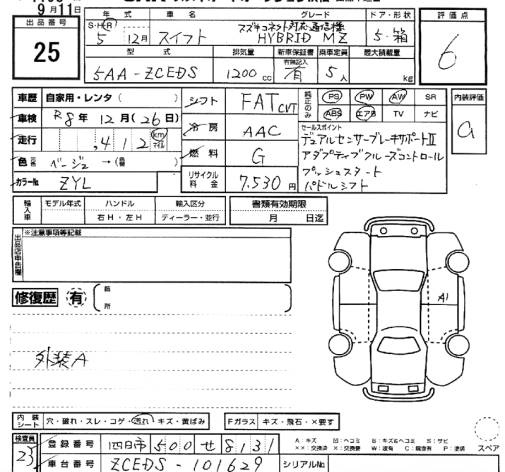 9月11日
出品番号
25
年式 車名 グレード ドア・形状
S・H・R
5 12月 スイフト スズキコネクト対応通信機
HYBRID MZ 5・箱
評価点
6
型式 排気量 新車保証書 乗車定員 最大積載量
有無記入
5AA-ZCEDS 1200cc 有 5人 kg
車歴 自家用・レンタ( )
車検 R8年12月(26日)
走行 ,412 km マイル
色 ベージュ →( )
カラーNo ZYL
シフト FAT CVT
冷房 AAC
燃料 G
リサイクル料金 7.530円
純正のみ PS PW AW SR
ABS エアB TV ナビ
内装評価
a
セールスポイント
デュアルセンサーブレーキサポートⅡ
アダプティブクルーズコントロール
プッシュスタート
パドルシフト
輸入車 モデル年式 ハンドル 輸入区分
右H・左H ディーラー・並行
書類有効期限
月 日迄
出品店申告欄
※注意事項等記載
修復歴 有 箇所
A1
外装A
内装シート 穴・破れ・スレ・コゲ・汚れ・キズ・黄ばみ
Fガラス キズ・飛石・×要す
検査員
23
登録番号 四日市 500 せ 8131
車台番号 ZCEDS-101629
シリアルNo
スペア